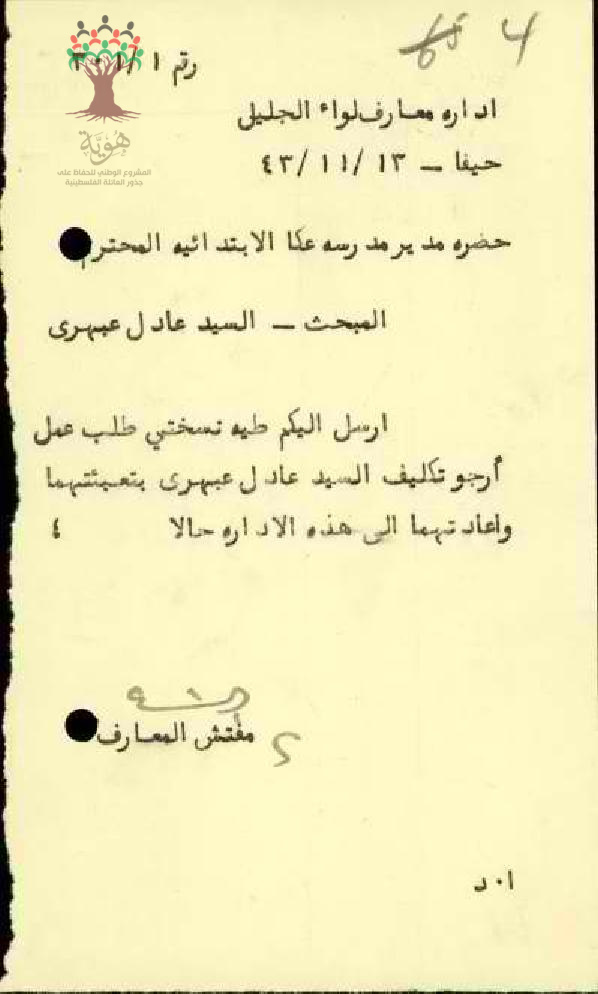 4
رقم ١ /١٠١ ٣
هُوِيَّة
المشروع الوطني للحفاظ على
جذور العائلة الفلسطينية
اداره معارف لواء الجليلي
حيفا – ١٣ /١١ /٤٣
حضره مدير مدرسه عكا الابتدائيه المحترم
المبحث – السيد عادل عبهرى
ارسل اليكم طيه نسختي طلب عمل
أرجو تكليف السيد عادل عبهرى بتعبئتهما
واعادتهما الى هذه الاداره حالا ؛
مفتش المعارف
ا٠د